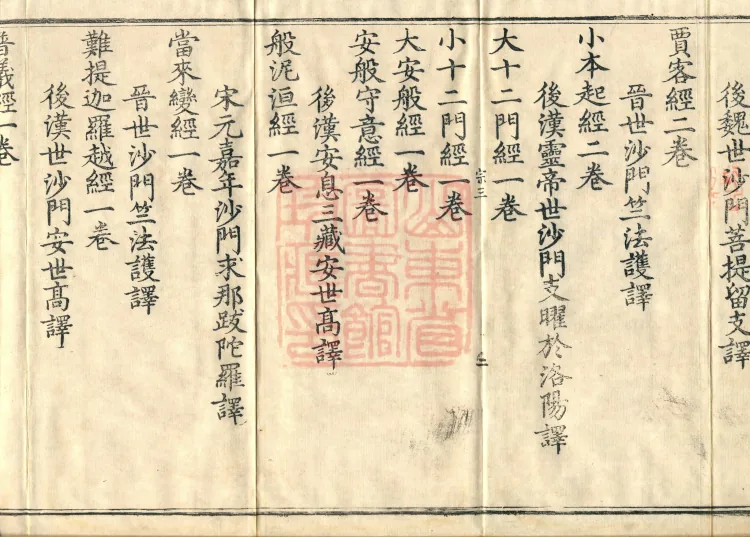 後魏世沙門菩提留支譯
賈客經二卷
晉世沙門竺法護譯
小本起經二卷
後漢靈帝世沙門支曜於洛陽譯
大十二門經一卷
宗三
小十二門經一卷
大安般經一卷
安般守意經一卷
後漢安息三藏安世高譯
般泥洹經一卷
宋元嘉年沙門求那跋陀羅譯
當來變經一卷
晉世沙門竺法護譯
難提迦羅越經一卷
後漢世沙門安世高譯
普義經一卷
山東省
圖書館